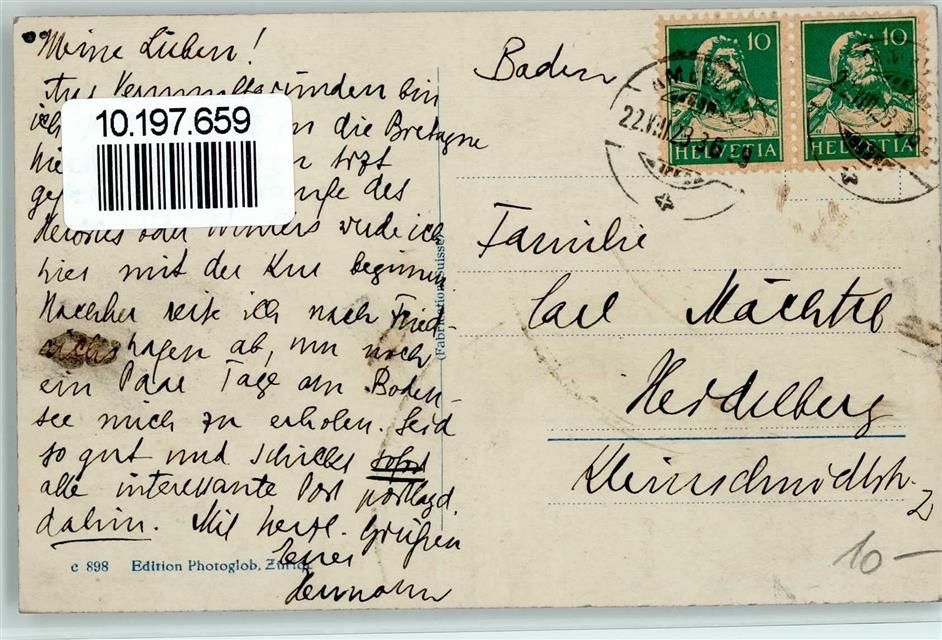 Meine Lieben!
Aus Vernunftsgründen bin
ich die Bretagne
des
oder Winters werde ich
hier mit der Kur beginnen
Nachher reise ich nach Fried-
richshagen ab, um noch
ein Paar Tage am Boden-
see mich zu erholen. Seid
so gut und schickt sofort
alle interessante Post postlagd.
dahin. Mit herzl. Grüßen
Euer
Hermann
10.197.659
c 898 Edition Photoglob, Zürich
(Fabrication Suisse)
Baden
10 10
HELVETIA HELVETIA
22.VIII.23
Familie
Carl Mächtel
Heidelberg
Kleinschmidtstr.
2
10-